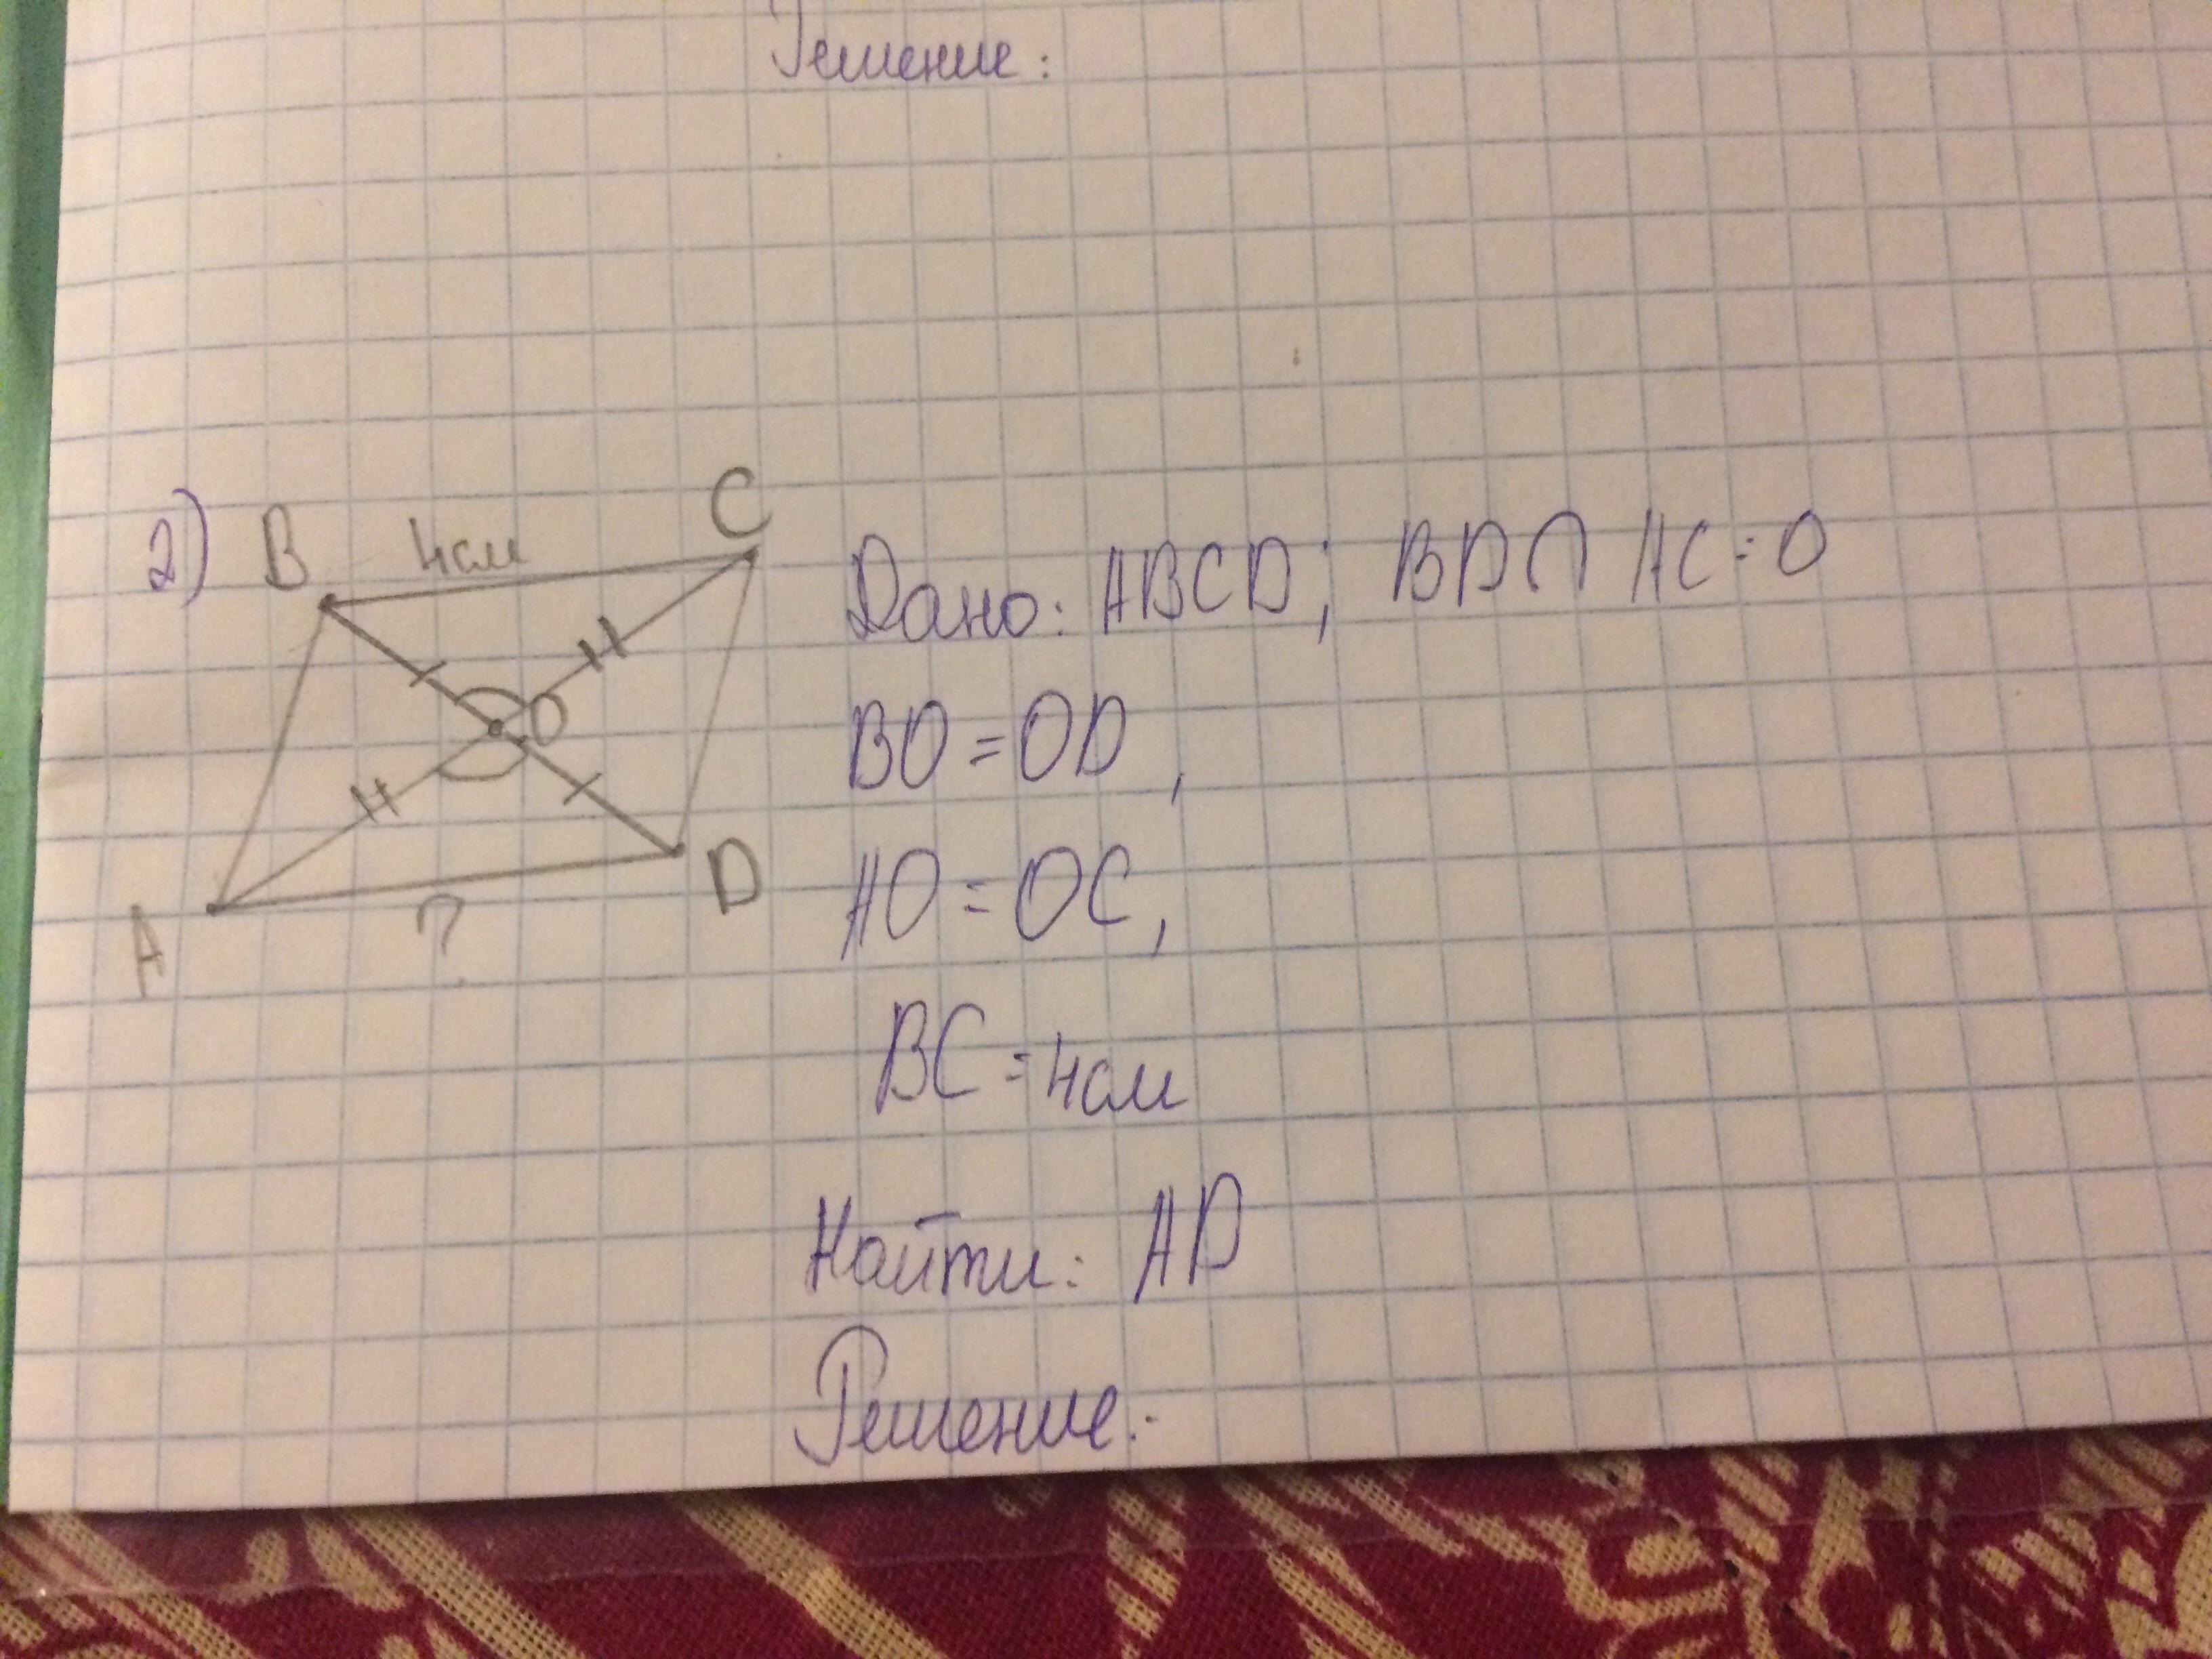 Решение:
2)
B 4см C
O
A ? D
Дано: ABCD; BD∩ AC=O
BO=OD,
AO=OC,
BC=4см
Найти: AD
Решение: